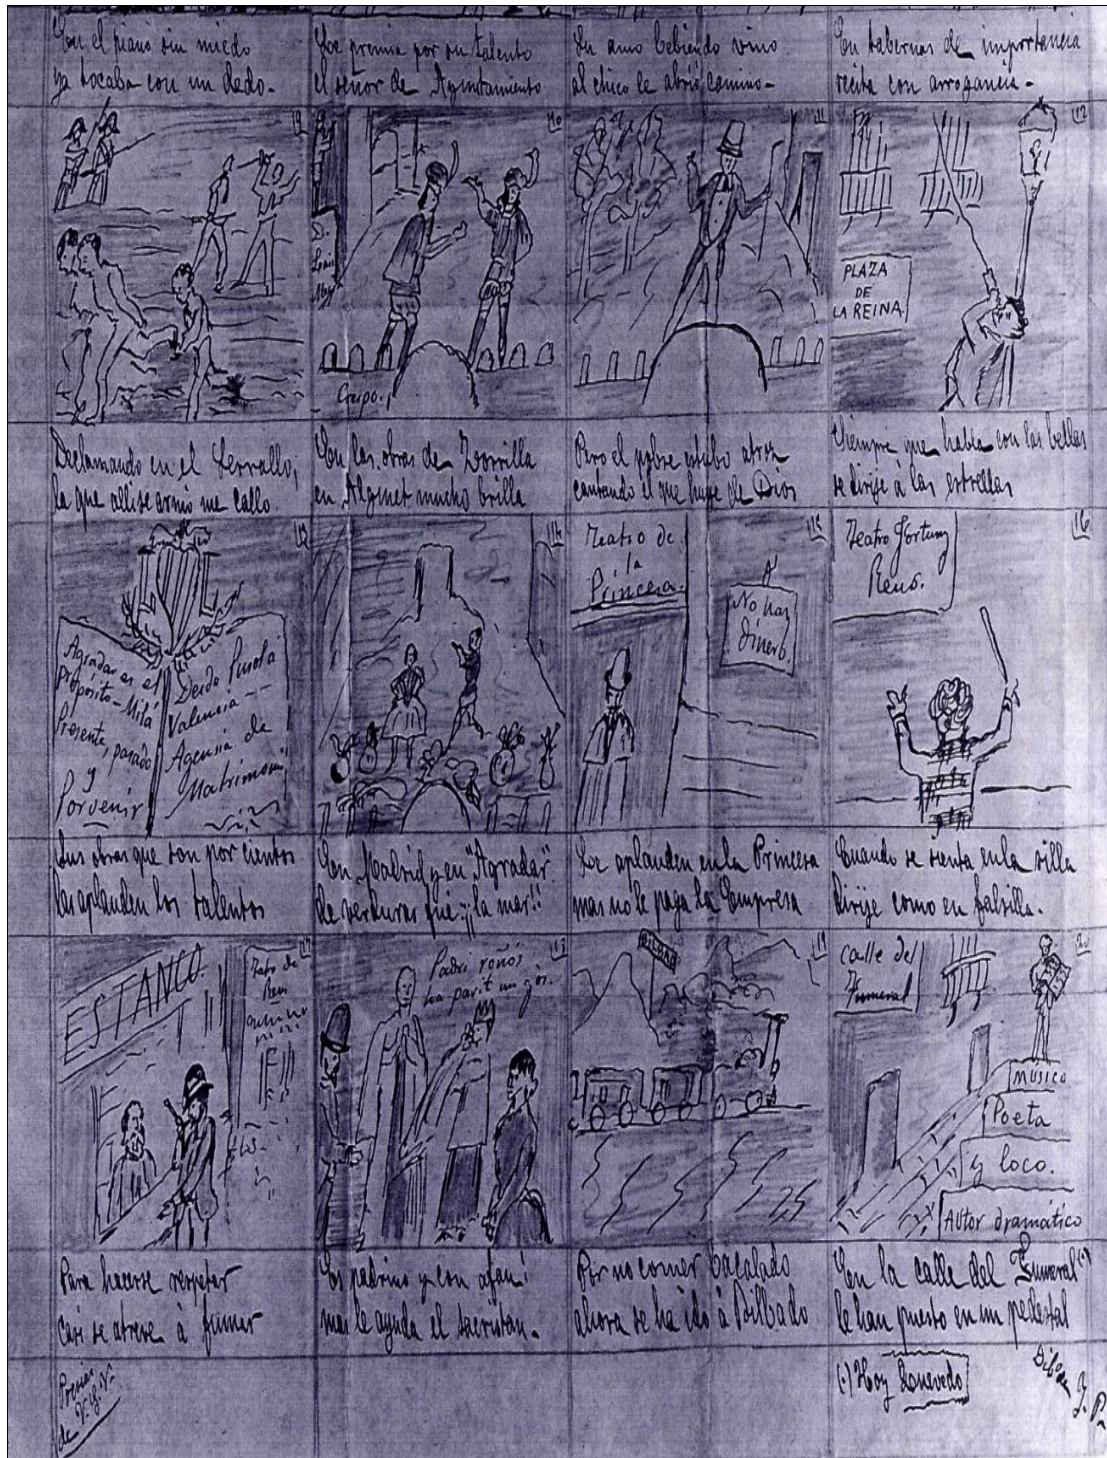 Con el piano sin miedo
ya tocaba con un dedo.-
Le premia por su talento
el señor de Ayuntamiento
Su amo bebiendo vino
al chico le abrió camino-
En tabernas de importancia
recita con arrogancia.-
9
10
Crespo.
11
12
PLAZA
DE
LA REINA
Declamando en el Serrallo,
la que alli se armó me callo.
Con las obras de Zorrilla
en Alginet mucho brilla
Pero el pobre estubo atroz
cantando el que huye de Dios
Siempre que habla con las bellas
se dirije à las estrellas
13
Agradar es el
propósito-Milá
Presente, pasado
y
Porvenir
Desde Pusola
Valencia
Agencia de
Matrimonios
14
15
Teatro de
la
Princesa.
No hay
dinero.
16
Teatro Fortuny
Reus.
Sus obras que son por cientos
las aplauden los talentos
En Madrid y en "Agradar"
de verduras que ¡¡la mar!!
Le aplauden en la Princesa
mas no le paga la Empresa
Cuando se sienta en la silla
dirije como en falsilla.-
17
ESTANCO.
18
Padrí roñós
ha parit un gós.
19
BILBAO
20
calle del
Funeral
MUSICO
Poeta
y loco.
Autor dramático
Para hacerse respetar
casi se atreve à fumar
Es padrino y con afan!
mas le ayuda el sacristán.-
Por no comer bacalado
ahora se ha ido à Bilbado
En la calle del Funeral (·)
le han puesto en un pedestal
Poesias
de V. G. N.
(·) Hoy Quevedo